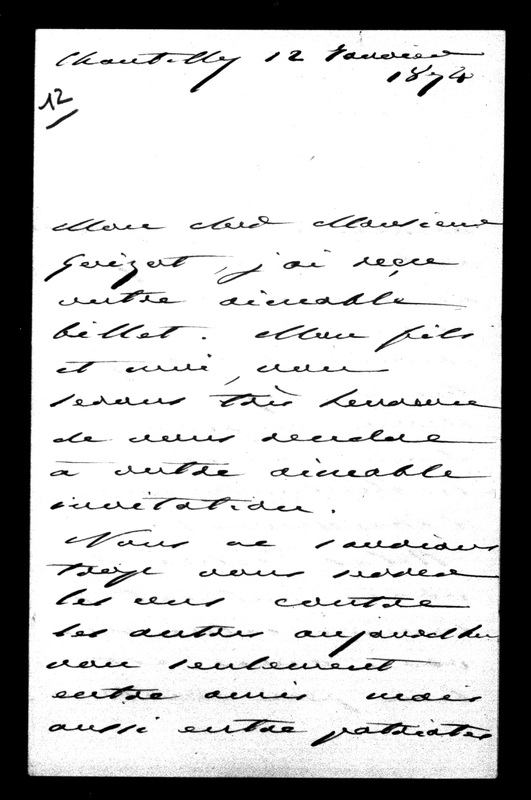 Chantilly 12 Janvier
1874
12
Mon cher Monsieur
Guizot, j'ai reçu
votre aimable
billet. Mon fils
et moi, nous
serons très heureux
de nous rendre
à votre aimable
invitation.
Nous ne saurions
trop nous serrer
les uns contre
les autres aujourd'hui
non seulement
entre amis mais
aussi entre patriotes